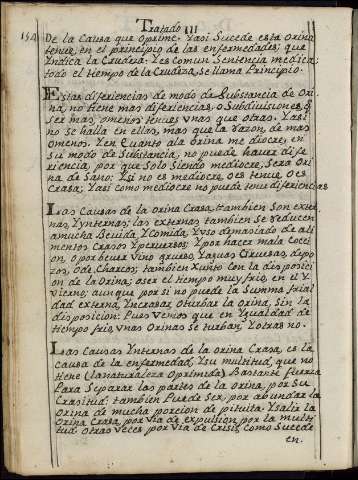 Tratado III
154
De la Causa que oprime. Yasi Sucede esta Orina
tenue, en el principio de las enfermedades; que
Yndica la Crudeza. Yes comun Sentencia medica;
todo el tiempo de la Crudeza, se llama Principio.
Estas diferiencias de modo de Substancia de Ori
na, no tiene mas diferiencias, o Subdiviciones, q
ser mas, omenos tenues unas que otras. Yasi
no se halla en ellas, mas que la razon, de mas
omenos. Yen Quanto ala Orina mediocre, en
su modo de Substancia, no puede haver dife
riencia, por que Solo Siendo mediocre, Sera Ori
na de Sano: Ysi no es mediocre, oes tenue, oes
crasa; Yasi como mediocre no puede tener diferiencias
Las Causas de la Orina Crasa, tambien son exter
nas, Yynternas; las externas tambien se reducen
amucha Bevida, YComida, Yuso demasiado de ali
mentos Crasos Yperversos; Ypor hacer mala Cocci
on, o por bever Vino grueso, Yaguas Gruesas, depo
zos, o de, Charcos; tambien Junto con la disposici
on de la Orina; o ser el tiempo muy frio, en el Y
Vierno; aunque por si no puede la Summa frial
dad externa, Yncrasar, oturbar la Orina, sin la
disposicion: Pues Vemos que en Ygualdad de
tiempo frio, unas Orinas se turban, Yotras no.
Las Causas Ynternas de la Orina Crasa, es la
causa de la enfermedad, Ysu multitud, que no
tiene (la naturaleza Oprimida) Bastante fuerza
Para Separar las partes de la Orina, por Su
Crasitud: tambien Puede Ser, por abundar la
Orina de mucha porcion de pituita. Ysalir la
Orina Crasa, por Via de expulsion, por la multi
tud. Otras Veces, por Via de Crisis, como Sucede
en.